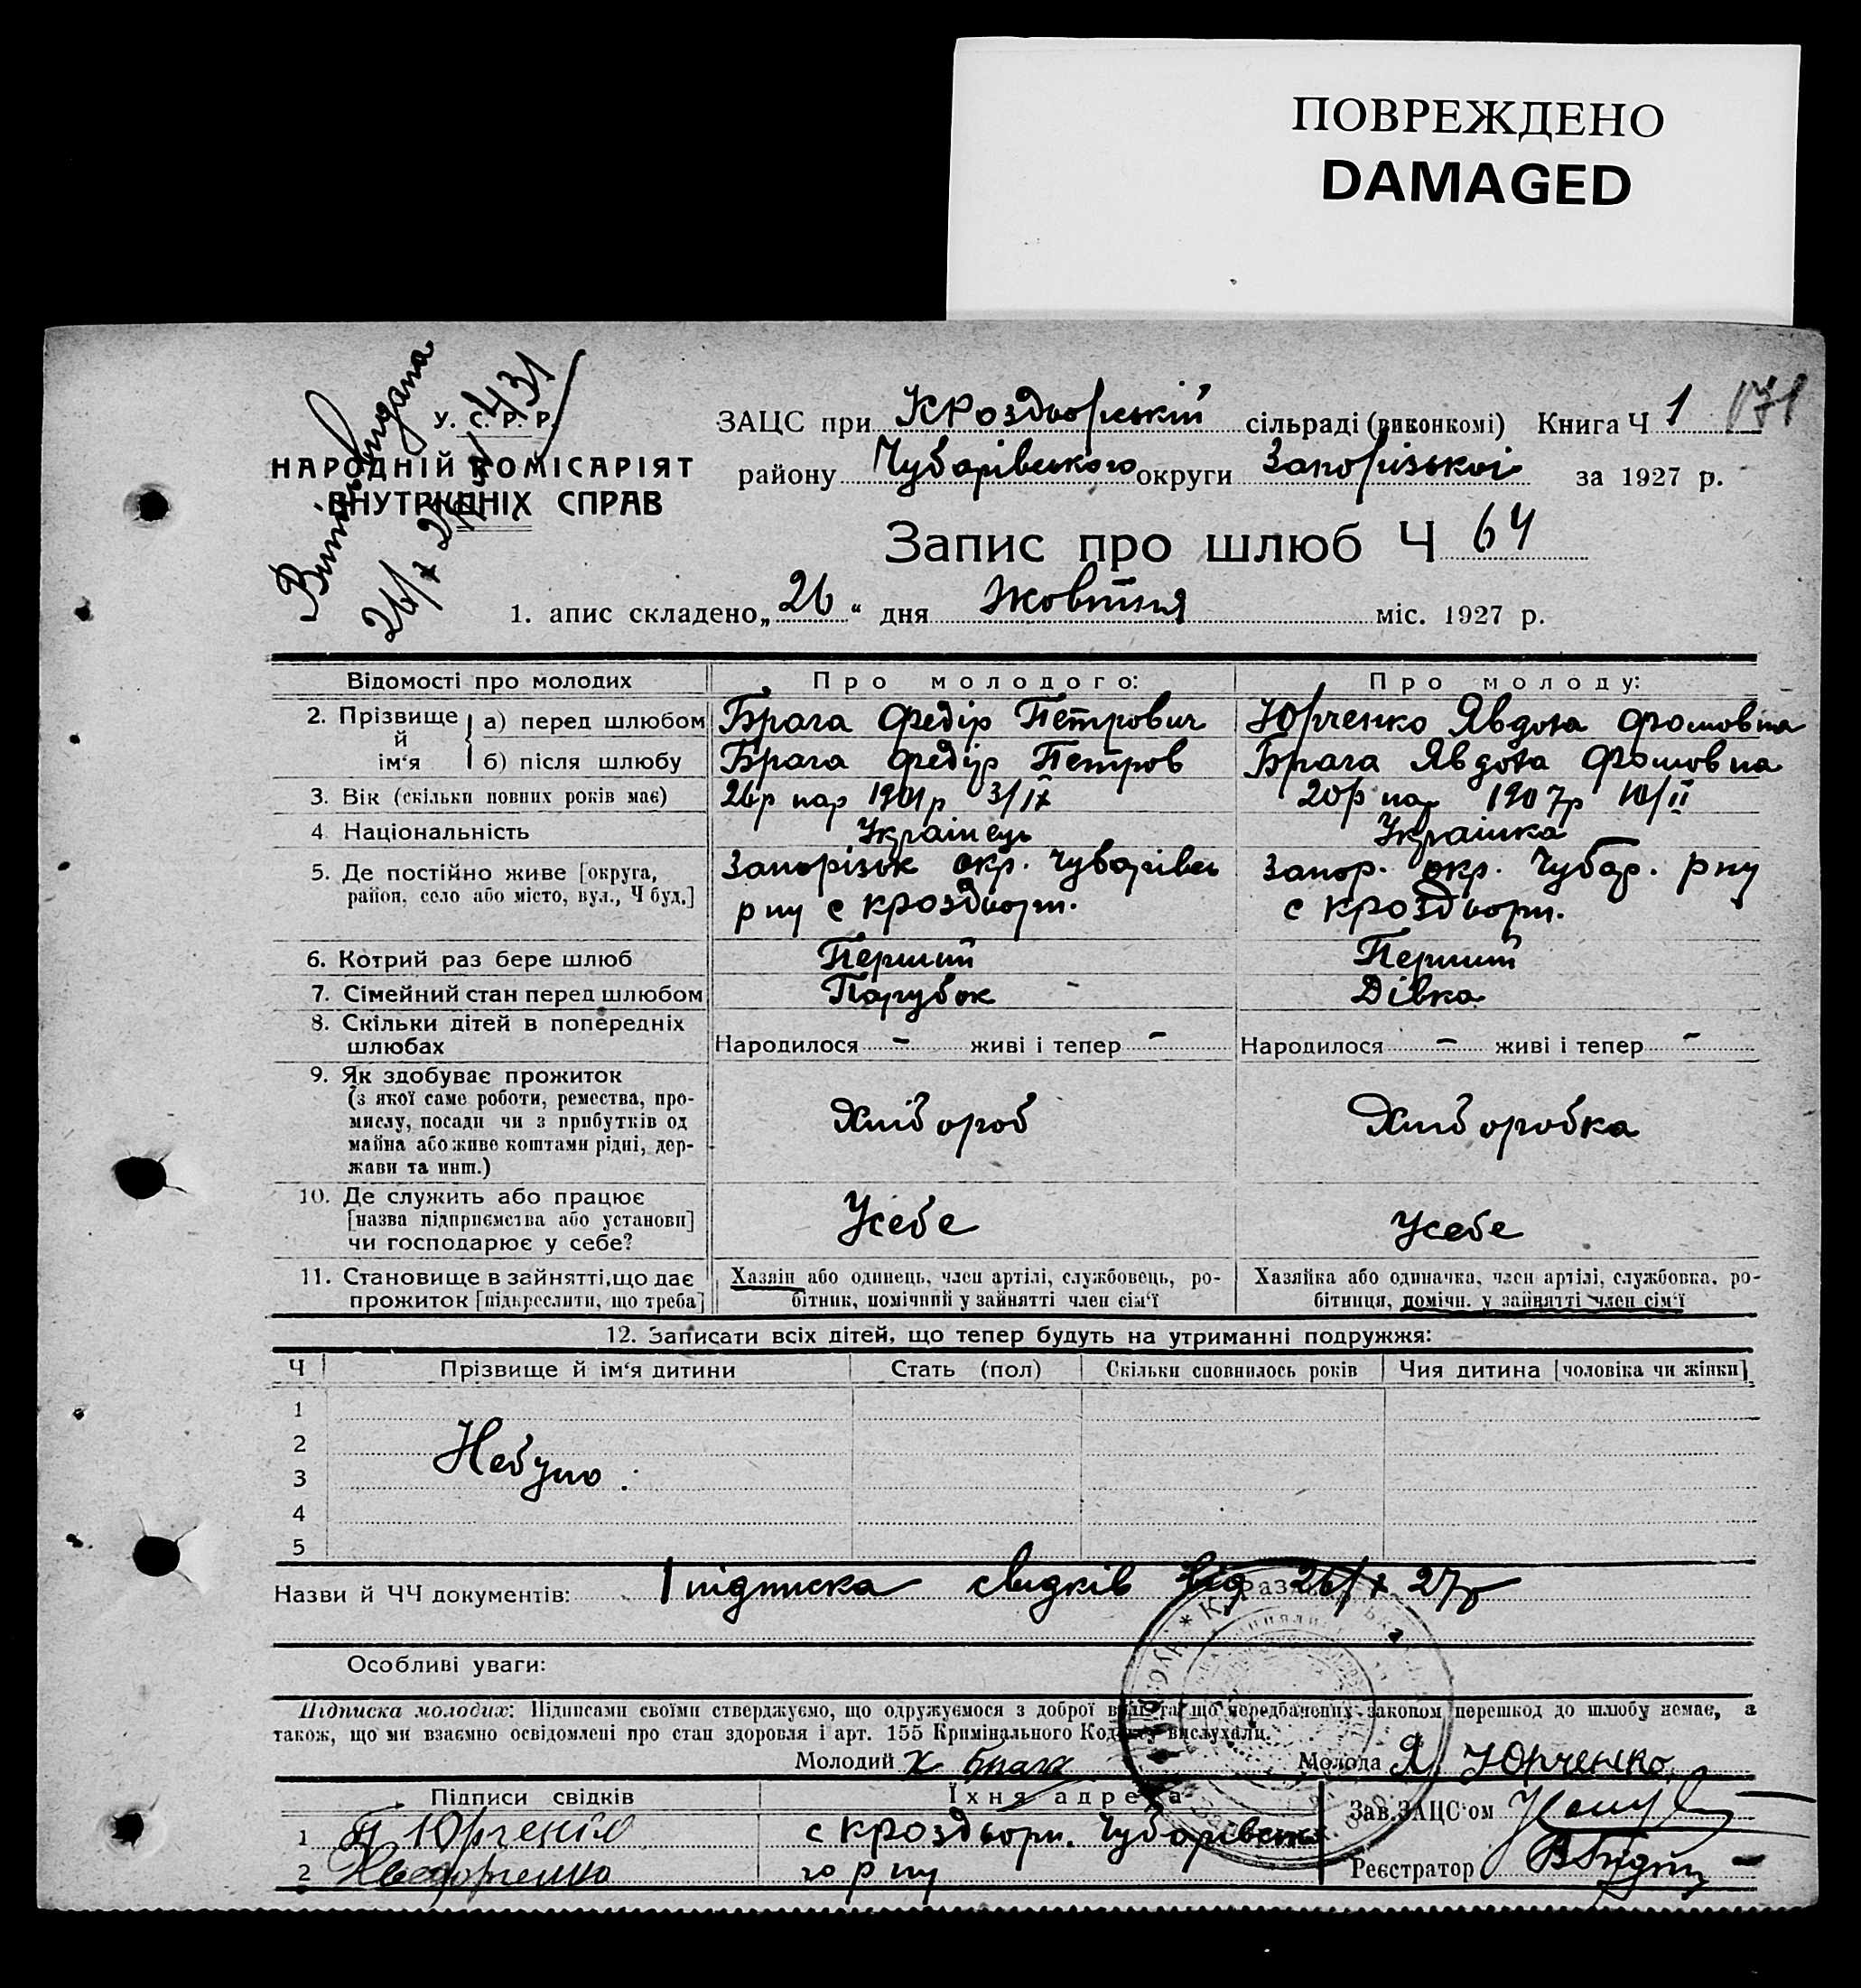 ПОВРЕЖДЕНО
DAMAGED
У. С. Р. Р.
НАРОДНІЙ КОМІСАРІЯТ
ВНУТРІШНІХ СПРАВ
ЗАЦС при КРоздорській сільраді (виконкомі) Книга Ч 1 171
району Чубарівського округи Запорізької за 1927 р.
Запис про шлюб Ч 64
1. апис складено „26“ дня Жовтня міс. 1927 р.
Відомості про молодих Про молодого: Про молоду:
2. Прізвище й ім‘я а) перед шлюбом Брага Федір Петрович Юрченко Явдоха Фомовна
б) після шлюбу Брага Федір Петров Брага Явдоха Фомовна
3. Вік (скільки повних років має) 26р нар 1901р 3/ІХ 20р нар 1907р 10/ІІ
4 Національність Українець Українка
5. Де постійно живе [округа, Запорізьк окр. Чубарівсь Запор. окр. Чубар. рну
район, село або місто, вул., Ч буд.] рну с КРоздори. с КРоздори.
6. Котрий раз бере шлюб Перший Перший
7. Сімейний стан перед шлюбом Парубок - Дівка
8. Скільки дітей в попередніх
шлюбах Народилося - живі і тепер - Народилося - живі і тепер -
9. Як здобуває прожиток
(з якої саме роботи, ремества, про-
мислу, посади чи з прибутків од Хліб ороб Хліб оробка
майна або живе коштами рідні, дер-
жави та инш.)
10. Де служить або працює
[назва підприємства або установи] Усебе Усебе
чи господарює у себе?
11. Становище в зайнятті, що дає Хазяїн або одинець, член артілі, службовець, ро- Хазяйка або одиначка, член артілі, службовка, ро-
прожиток [підкреслити, що треба] бітник, помічний у зайнятті член сім‘ї бітниця, помічн. у зайнятті член сім‘ї
12. Записати всіх дітей, що тепер будуть на утриманні подружжя:
Ч Прізвище й ім‘я дитини Стать (пол) Скільки сповнилось років Чия дитина [чоловіка чи жінки]
1
2
Небуло.
3
4
5
Назви й ЧЧ документів: 1 підписка свидків від 26/х 27р
Особливі уваги:
Підписка молодих: Підписами своїми стверджуємо, що одружуємося з доброї волі та що передбачених законом перешкод до шлюбу немає, а
також, що ми взаємно освідомлені про стан здоровля і арт. 155 Кримінального Кодексу вислухали.
Молодий Брага Молода Я Юрченко
Підписи свідків Їхня адреса Зав. ЗАЦС‘ом
1 П Юрченко с КРоздори. Чубарівсько
2 го рну Реєстратор